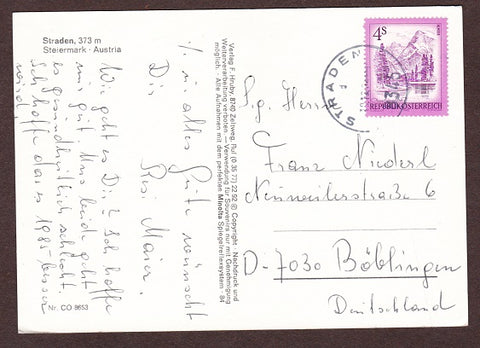 Straden, 373 m
Steiermark · Austria
Wie geht es Dir? Ich hoffe
mir gut. Uns beide geht
es gesundheitlich schlecht
Ich hoffe das es 1985 besser
wird
Nr. CO 8653
% in alles Gute wünscht
Dir
Resi Maier
Verlag F. Hruby, 8740 Zeltweg, Ruf (0 35 77) 22 92 © Copyright · Nachdruck und
Weiterverarbeitung verboten — Verwendung für Souvenirs nur mit Genehmigung
möglich. · Alle Aufnahmen mit dem perfekten Minolta Spiegelreflexsystem · 84
STRADEN
8345
4 S
REPUBLIK ÖSTERREICH
Sg. Herrn
Franz Niederl
Neuweilerstraße 6
D-7030 Böblingen
Deutschland